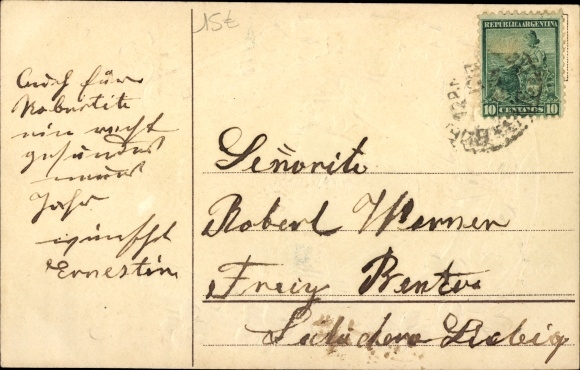 15€
REPUBLICA ARGENTINA
10 CENTAVOS 10
Auch für
Robertito
ein recht
gesundes
neues
Jahr
wünscht
Ernestin
Señorito
Robert Werner
Fray Bentos
Saladero Liebig